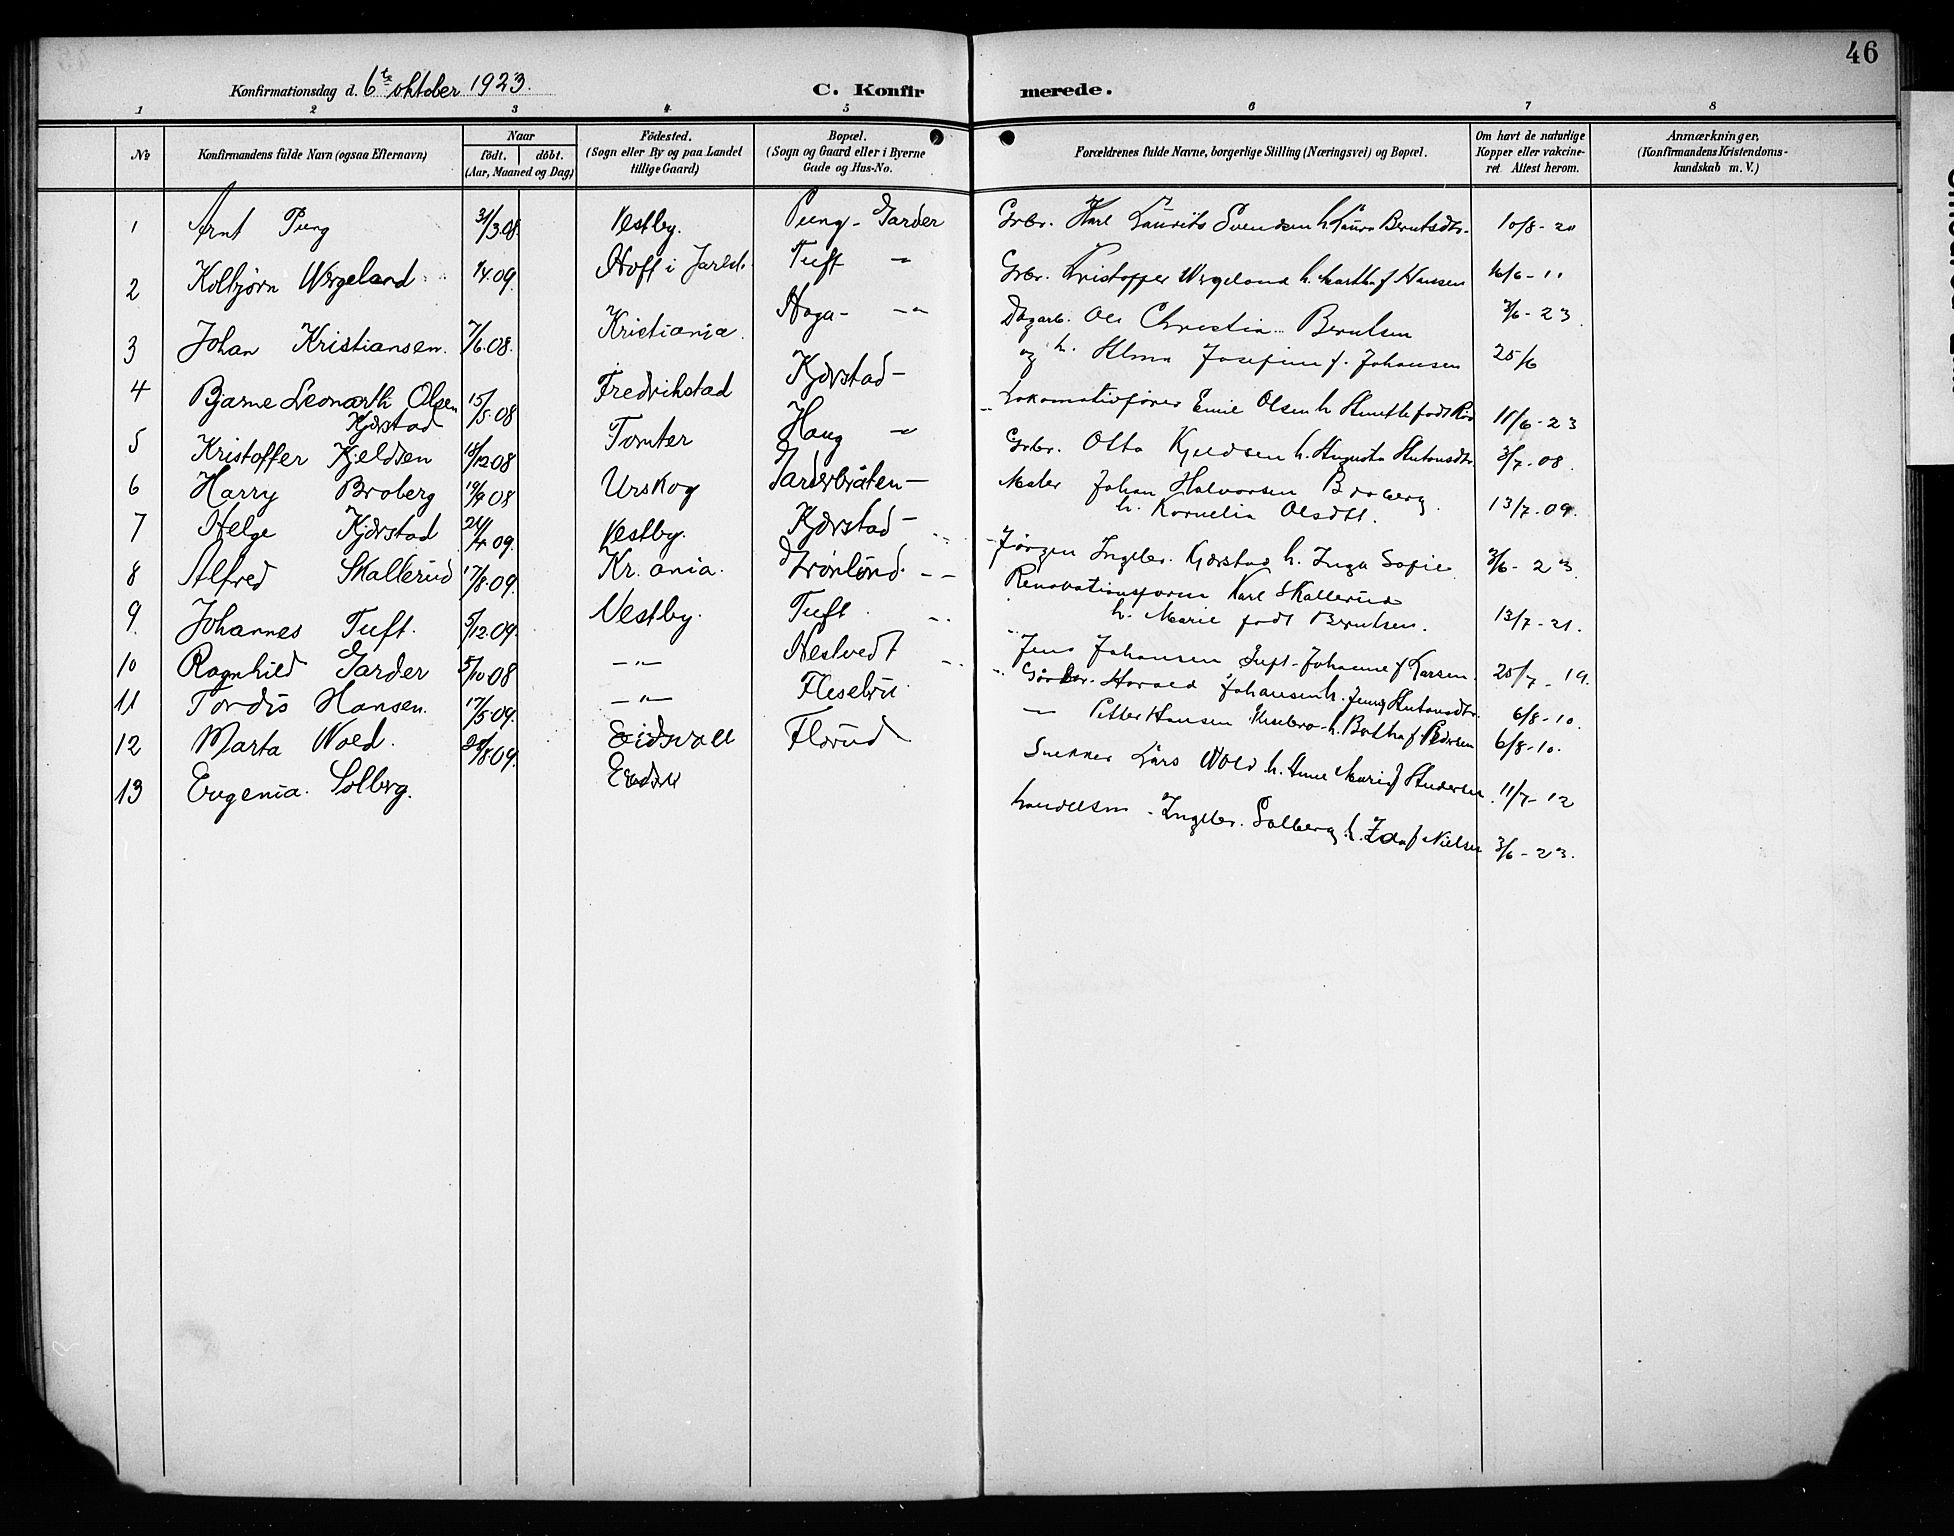 46
Konfirmationsdag d. 6te oktober 1923. C. Konfirmerede.
1 2 3 4 5 6 7 8
No. Konfirmandens fulde Navn (ogsaa Efternavn) Naar födt. döbt. (Aar, Maaned og Dag) Födested. (Sogn eller By og paa Landet tillige Gaard) Bopæl. (Sogn og Gaard eller i Byerne Gade og Hus-No. Forældrenes fulde Navne, borgerlige Stilling (Næringsvei) og Bopæl. Om havt de naturlige Kopper eller vakcineret Attest herom. Anmærkninger, (Konfirmandens Kristendomskundskab m. V.)
1 Arnt Pung 31/3.08. Vestby. Pung - Garder Grbr. Karl Laurits Svendsen h. Laura Berntsdtr. 10/8 - 20
2 Kolbjørn Wergeland 1/4.09. Hoff i Jarlsb. Tuft -"- Grbr. Kristoffer Wergeland h. Martha f Hansen 16/6 - 11
3 Johan Kristiansen. 7/6.08. Kristiania. Haga - -"- Dagarb. Ole Christian Berntsen 3/6 - 23.
og h. Alma Josefine f. Johansen 25/6
4 Bjarne Leonarth Olsen 15/5.08 Fredrikstad Kjærstad - Lokomotivfører Emil Olsen h. 11/6 - 23
Kjærstad
5 Kristoffer Kjeldsen 18/12 08 Tomter Haug -"- Grbr. Otto Kjeldsen h. Augusta Antonsdtr. 3/7 - 08.
6 Harry Broberg 19/9 08 Urskog Garderbråten - Maler Johan Halvorsen Broberg.
h. Kornelia Olsdtt. 13/7 - 09.
7 Helge Kjærstad 24/4 09. Vestby. Kjærstad - Jörgen Ingebr. Kjærstad h. Inga Sofie 3/6 - 23.
8 Alfred Skallerud 17/8.09. Kr.ania. Grönlund. - - Renovationsform Karl Skallerud
h. Marie födt Berntsen. 13/7 - 21.
9. Johannes Tuft. 5/12.09. Vestby. Tuft. Jens Johansen Tuft - Johanne f Larsen. 25/7 - 19.
10 Ragnhild Garder 5/10 08 -"- Nestvedt Gårdbr. Harald Johansen h. Jenny Antonsdtr. 6/8 - 10.
11 Tordis Hansen. 17/5.09. -"- Flesebru. -"- Petter Hansen h. Bertha f Pedersen 6/8 - 10.
12 Marta Wold. 20/8 09. Eidsvoll Florud Snekker Lars Wold h. Anne Marie f Andersen. 11/7 - 12
13 Eugenia. Solberg. Handelsm - Ingebr. Solberg h. Ida f Nielsen 3/6 - 23.